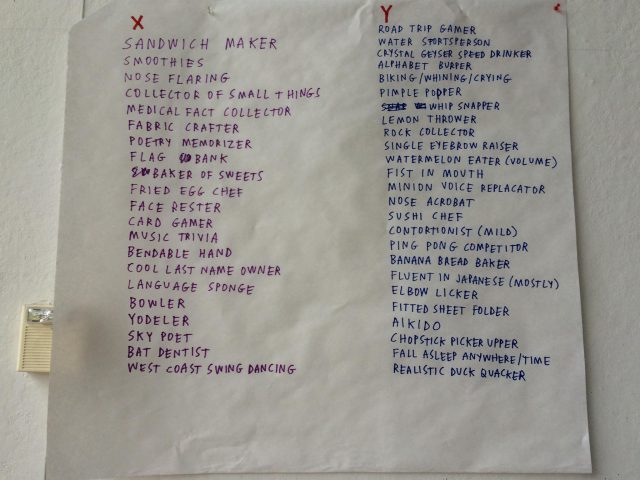 X
SANDWICH MAKER
SMOOTHIES
NOSE FLARING
COLLECTOR OF SMALL THINGS
MEDICAL FACT COLLECTOR
FABRIC CRAFTER
POETRY MEMORIZER
FLAG BANK
BAKER OF SWEETS
FRIED EGG CHEF
FACE RESTER
CARD GAMER
MUSIC TRIVIA
BENDABLE HAND
COOL LAST NAME OWNER
LANGUAGE SPONGE
BOWLER
YODELER
SKY POET
BAT DENTIST
WEST COAST SWING DANCING
Y
ROAD TRIP GAMER
WATER SPORTSPERSON
CRYSTAL GEYSER SPEED DRINKER
ALPHABET BURPER
BIKING/WHINING/CRYING
PIMPLE POPPER
WHIP SNAPPER
LEMON THROWER
ROCK COLLECTOR
SINGLE EYEBROW RAISER
WATERMELON EATER (VOLUME)
FIST IN MOUTH
MINION VOICE REPLACATOR
NOSE ACROBAT
SUSHI CHEF
CONTORTIONIST (MILD)
PING PONG COMPETITOR
BANANA BREAD BAKER
FLUENT IN JAPANESE (MOSTLY)
ELBOW LICKER
FITTED SHEET FOLDER
AIKIDO
CHOPSTICK PICKER UPPER
FALL ASLEEP ANYWHERE/TIME
REALISTIC DUCK QUACKER